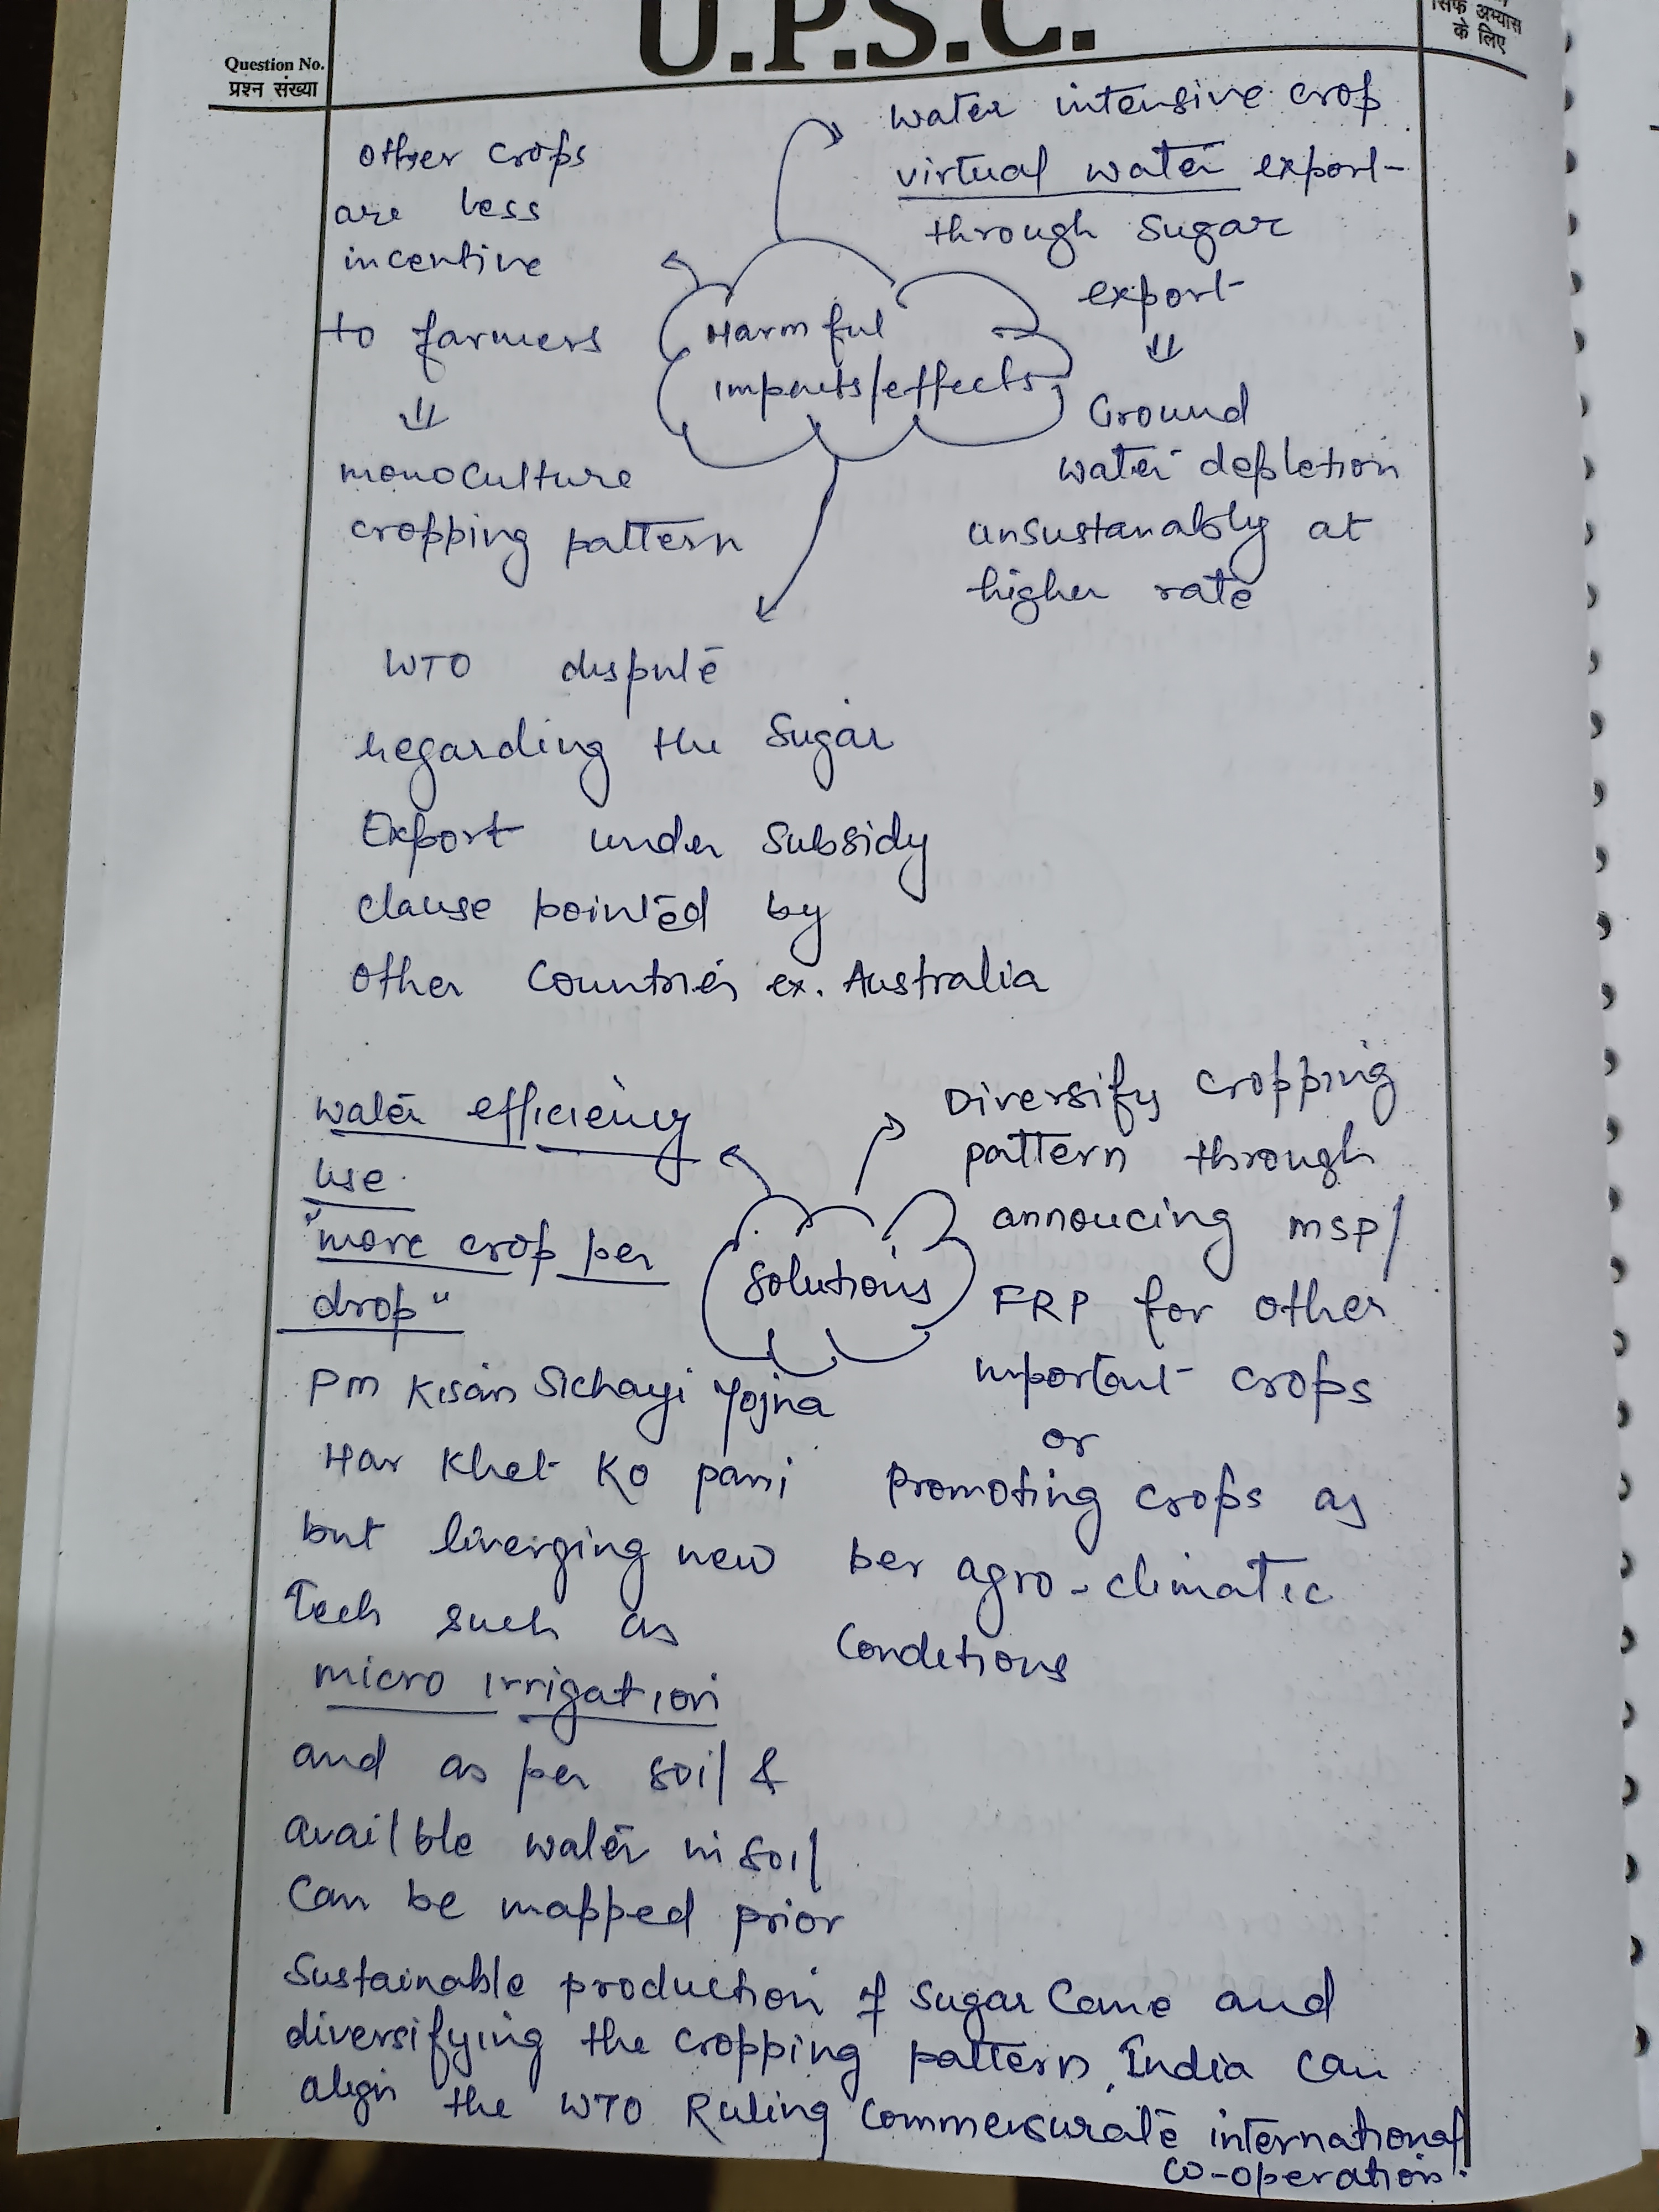 U.P.S.C.
सिर्फ अभ्यास
के लिए
Question No.
प्रश्न संख्या
other crops
are less
incentive
to farmers
⇓
monoculture
cropping pattern
water intensive crop
virtual water export
through sugar
export
⇓
Ground
water depletion
unsustanably at
higher rate
Harmful
impacts/effects
WTO dispute
regarding the Sugar
Export under subsidy
clause pointed by
other Countries ex. Australia
water efficiency
use
"more crop per
drop"
PM Kisan Sichayi Yojna
Har Khet Ko pani
but liverging new
Tech such as
micro irrigation
and as per soil &
availble water in soil
can be mapped prior
Solutions
Diversify cropping
pattern through
annoucing MSP/
FRP for other
important crops
or
Promoting crops as
per agro-climatic
Conditions
Sustainable production of Sugar Cane and
diversifying the cropping pattern, India can
align the WTO Ruling commensurate international
co-operation.